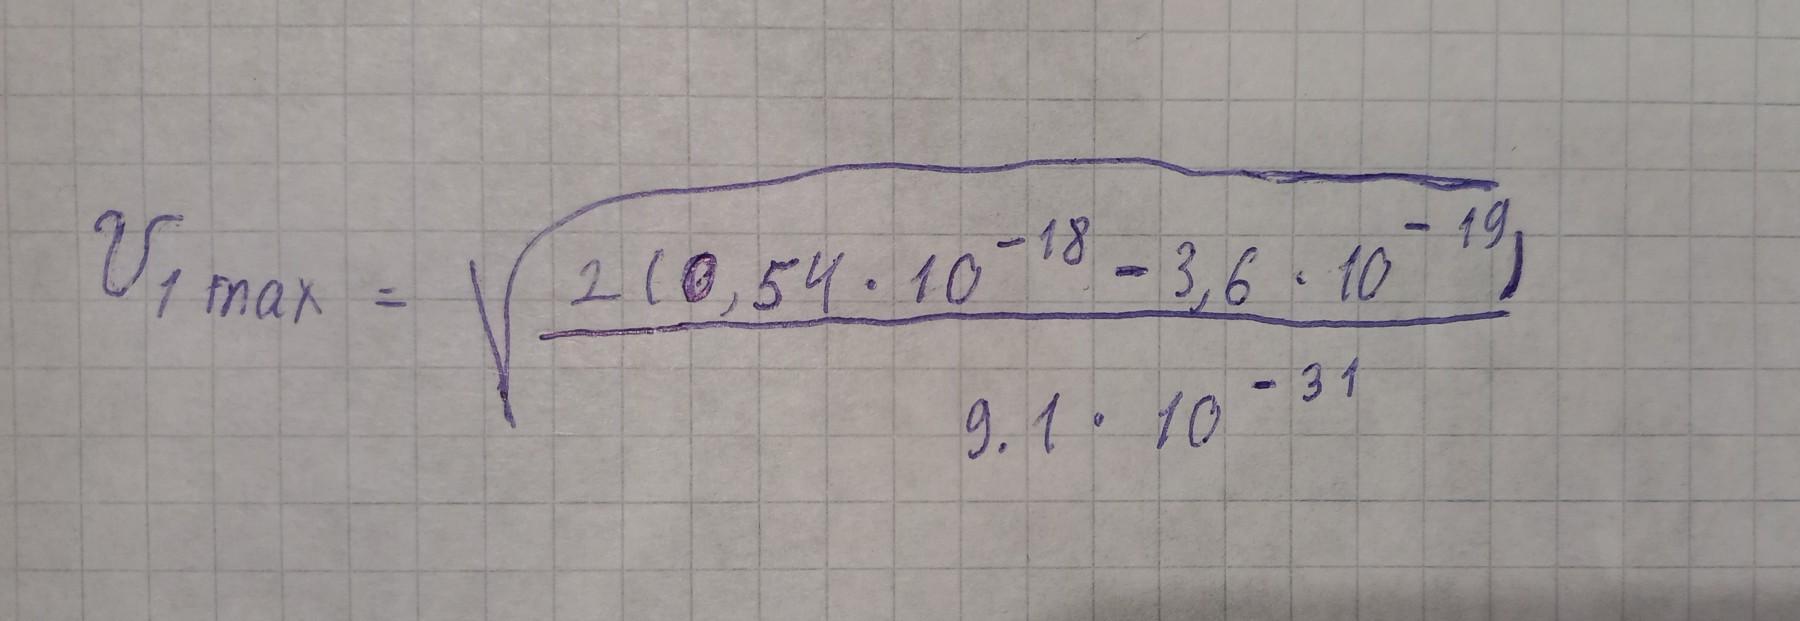 V₁ max = √(2(0,54 · 10⁻¹⁸ - 3,6 · 10⁻¹⁹)
9.1 · 10⁻³¹